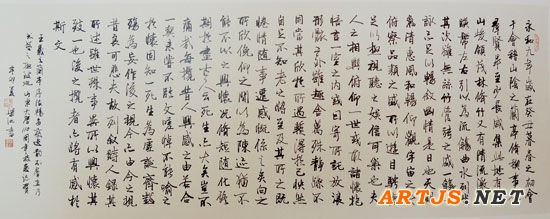 永和九年歲在癸丑暮春之初會
于會稽山陰之蘭亭脩禊事也
羣賢畢至少長咸集此地有崇
山峻領茂林脩竹又有清流激湍
暎帶左右引以為流觴曲水列坐
其次雖無絲竹管弦之盛一觴一
詠亦足以暢敘幽情是日也天朗
氣清惠風和暢仰觀宇宙之大
俯察品類之盛所以遊目騁懷
足以極視聽之娛信可樂也夫
人之相與俯仰一世或取諸懷抱
悟言一室之內或因寄所託放浪
形骸之外雖趣舍萬殊靜躁不
同當其欣於所遇蹔得於己怏然
自足不知老之將至及其所之既
惓情隨事遷感慨係之矣向之
所欣俛仰之間以為陳迹猶不
能不以之興懷況脩短隨化終
期於盡古人云死生亦大矣豈不
痛哉每攬昔人興感之由若合
一契未嘗不臨文嗟悼不能喻之
於懷固知一死生為虛誕齊彭
殤為妄作後之視今亦由今之視
昔悲夫故列敘時人錄其
所述雖世殊事異所以興懷其
致一也後之攬者亦將有感於
斯文
ARTJS.NET